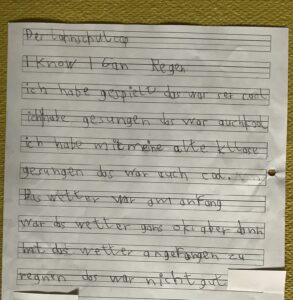 Der Lahnschulcap
I Know I Can Regen
ich habe gespielt das war ser cool
ich habe gesungen das war auch cool
ich habe mit meine alte kllase
gesungen das war auch cool.
Das wetter war am anfang
war das wetter gans oki aber dann
hat das wetter angefangen zu
regnen das war nicht gut